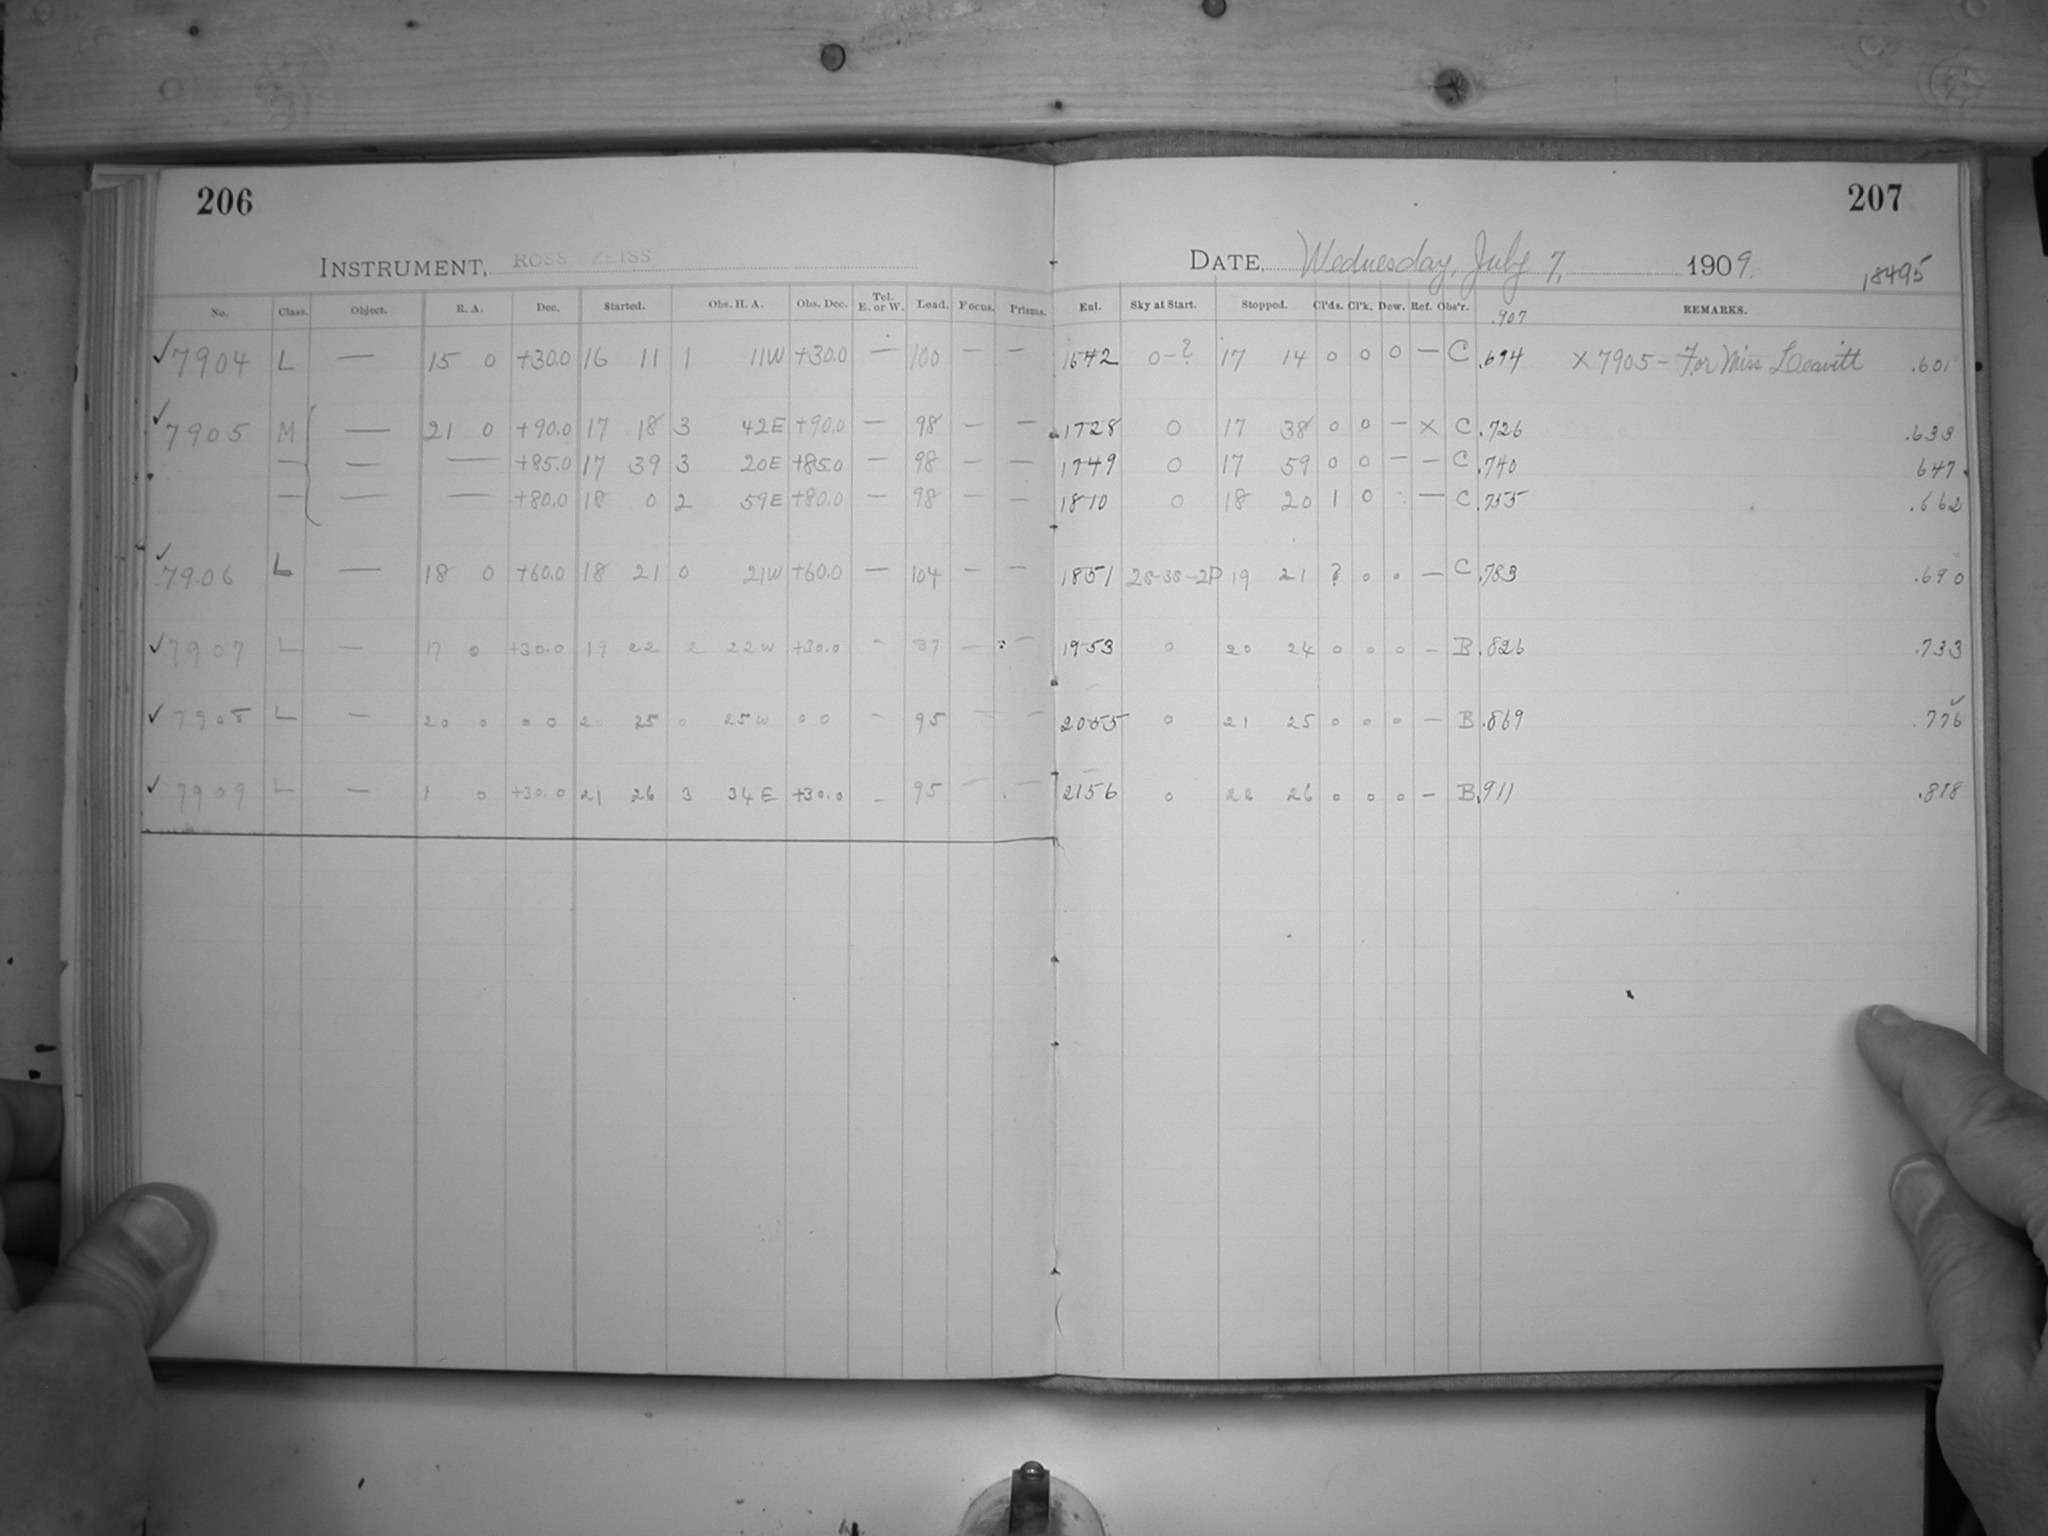 206
INSTRUMENT, ROSS ZEISS
No. Class. Object. R. A. Dec. Started. Obs. H. A. Obs. Dec. Tel. E. or W. Load. Focus. Prisms.
✓7904 L — 15 0 +30.0 16 11 1 11W +30.0 — 100 — —
✓7905 M — 21 0 +90.0 17 18 3 42E +90.0 — 98 — —
— — — +85.0 17 39 3 20E +85.0 — 98 — —
— — — +80.0 18 0 2 59E +80.0 — 98 — —
✓7906 L — 18 0 +60.0 18 21 0 21W +60.0 — 104 — —
✓7907 L — 17 0 +30.0 19 22 2 22W +30.0 - 97 — —
✓7908 L — 20 0 0 0 20 25 0 25W 0 0 - 95 — —
✓7909 L — 1 0 +30.0 21 26 3 34E +30.0 - 95 — —
207
DATE, Wednesday, July 7, 1909.
18495
Ent. Sky at Start. Stopped. Cl'ds. Cl'k. Dew. Ref. Obs'r. REMARKS.
.907
1642 0-? 17 14 0 0 0 — C .694 X 7905 - For Miss Leavitt .601
1728 0 17 38 0 0 - X C .726 .633
1749 0 17 59 0 0 - - C .740 .647
1810 0 18 20 1 0 — C .755 .662
1851 2S-3S-2P 19 21 ? 0 0 — C .783 .690
1953 0 20 24 0 0 0 - B .826 .733
2055 0 21 25 0 0 0 — B .869 .776
2156 0 22 26 0 0 0 - B .911 .818